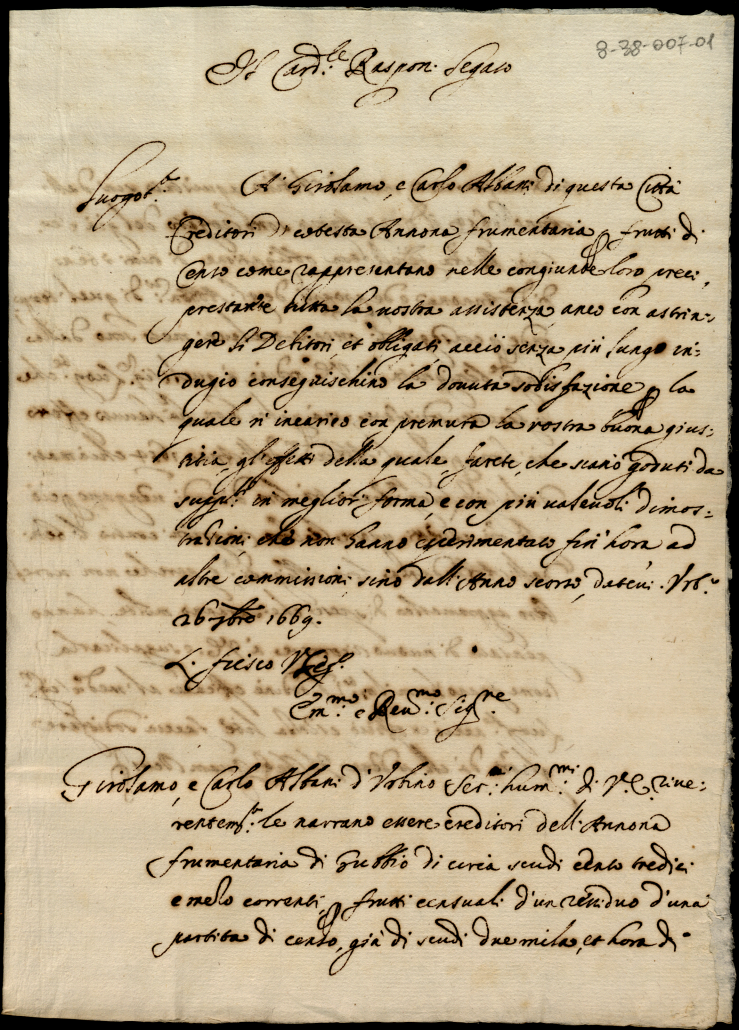 8-38-007-01
Il Card.le Raspon: Legato
Luogot.te
A' Girolamo, e Carlo Albani di questa Città
Creditori di cotesta Annona frumentaria p frutti di
Censo come rappresentano nelle congiunte loro preci,
prestarete tutta la nostra assistenza, anco con astrin=
gere li Debitori, et obligati, acciò senza più lungo in=
dugio conseguischino la dovuta sodisfazione, p la
quale si incarico con premura la vostra buona gius=
titia, gl'effetti della quale farete, che siano goduti da
supp.ti in meglior forma e con più valevoli dimos=
trationi che non hanno esperimentato fin'hora ad
altre commissioni sino dall'Anno scorso, datevi. Urb.o
26 7bre 1669.
L. fiesco VLeg.
Em.mo e Rev.mo Sig.ne
Girolamo, e Carlo Albani d'Urbino Ser.i hum.mi di V.E. rive=
rentem.te le narrano essere creditori dell'Annona
frumentaria di Gubbio di circa scudi cento tredici
e mezo correnti, p frutti censuali d'un residuo d'una
partita di censo, già di scudi due mila, et hora di